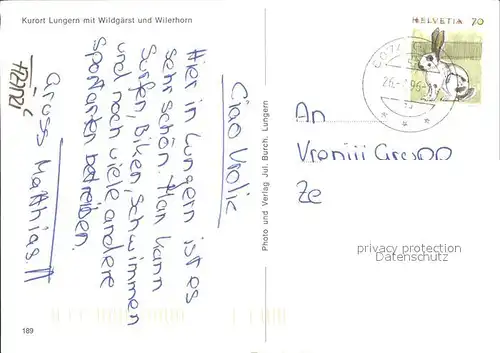 Kurort Lungern mit Wildgärst und Wilerhorn
Ciao Vroli
Hier in Lungern ist es
sehr schön. Man kann
Surfen, Biken, Schwimmen
und noch viele andere
Sportarten betreiben.
Gruss Matthias
Photo und Verlag Jul. Burch, Lungern
HELVETIA 70
An
privacy protection
Datenschutz
189